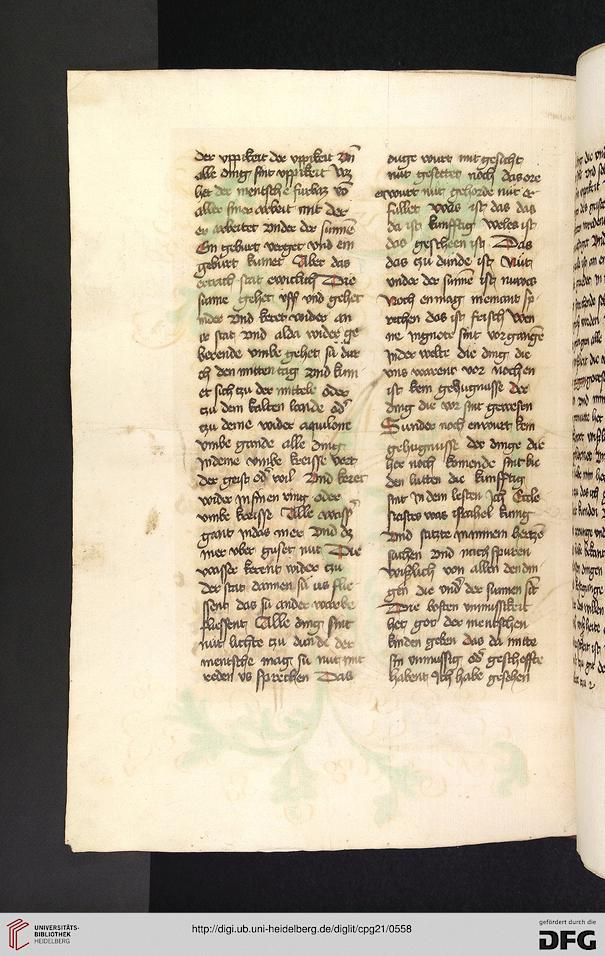 der vppikeit der vppikeit vn̄
alle ding sint vppikeit Waz
het der mentsche furbaz vō
aller siner arbeit mit der
er arbeitet vnder der sunnē
Ein geburt verget vnd ein
geburt kumet Aber das
ertrich stat ewiclich Die
sunne gehet vff vnd gehet
nider vnd keret wider an
ir stat vnd alda wider ge
berende vmbe gehet sú dur
ch den mitten tag vnd kum
et sich zu der mittele oder
zu dem kalten lande od̕
zu deme wider aquilone
vmbe grande alle ding
indeme vmbe kreisse vert
der geist od̕ wil vnd keret
wider in sinen ring oder
vmbe kreisse Alle wass̕
gant indas mer vnd dz
mer vber guset nút Die
wasser kerent wider zu
der stat dannen sú us flie
ssent das sú ander warbe
fliessent Alle ding sint
nút lichte zu dunde der
mentsche mag sú nút mit
reden us sprechen Das
ouge wurt mit gesicht
nút gesettet noch das ore
wurt nút gehorde nút er
fullet Was ist das das
da ist kunfftig Weles ist
das gescheen ist Das
das zu dunde ist Nút
vnder der sunne ist nuwes
Noch en mag niemant sp
rechen das ist frisch Wen
ne ingnote sint vorgangē
inder welte die ding die
vns warent vor noch en
ist kein gehugnisse der
ding die vor sint gewesen
Sunder noch enwurt kein
gehugnisse der dinge die
her noch komende sint bie
den lúten die kunfftig
sint in dem lesten Ich Eccle
siastes was israhel kúnig
vnd satzte in minem hertzē
suchen vnd nach spuren
wislich von allen den din
gen die vnd̕ der sunnen sīt
Die bosten vnmussikeit
het got der mentschen
kinden geben das da mitte
sin vnmussig od̕ gescheffte
habent Ich habe gesehen
UNIVERSITÄTS-
BIBLIOTHEK
HEIDELBERG
http://digi.ub.uni-heidelberg.de/diglit/cpg21/0558
gefördert durch die
DFG